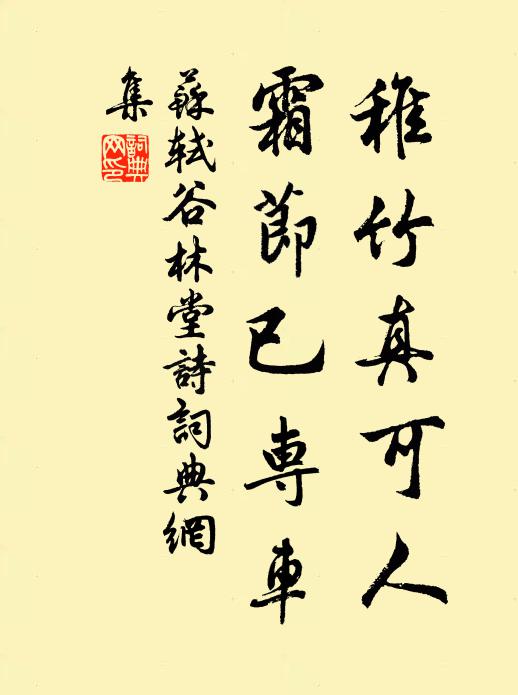 稚竹真可人
霜節已専車
蘇軾谷林堂詩詞典網
集
詞典
网印